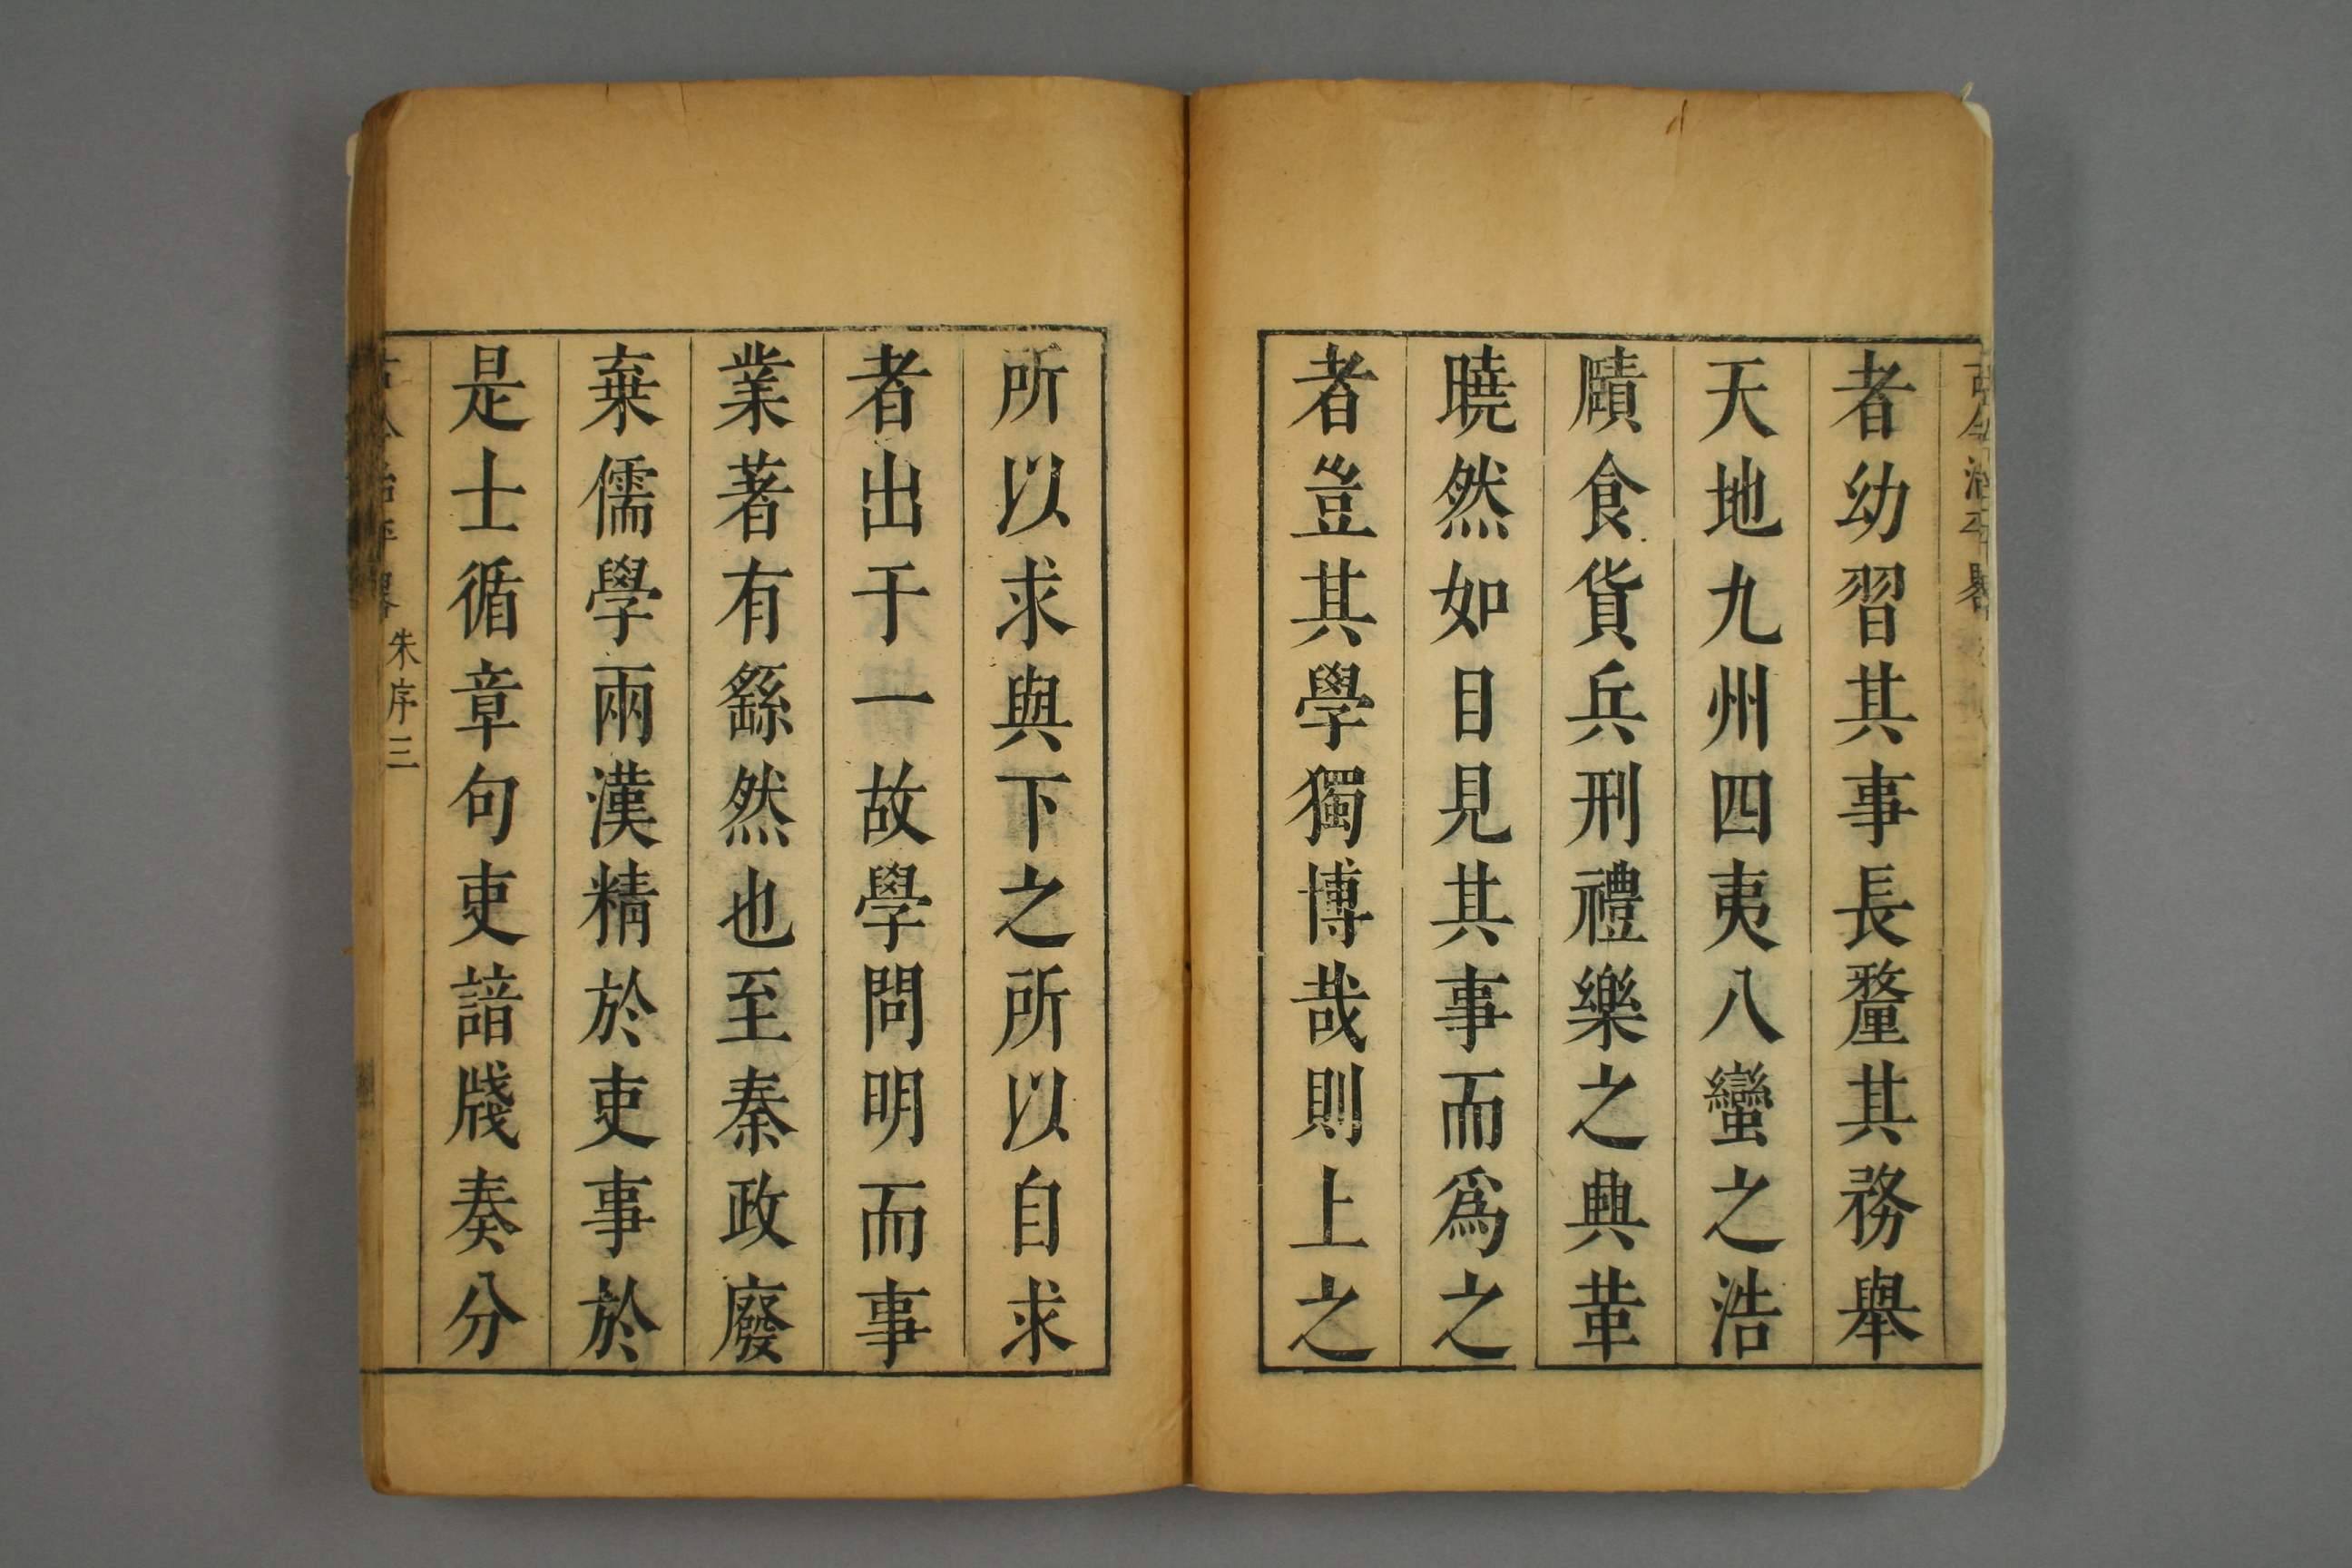 者幼習其事長釐其務舉
天地九州四夷八蠻之浩
賾食貨兵刑禮樂之典革
曉然如目見其事而爲之
者豈其學獨博哉則上之
所以求與下之所以自求
者出于一故學問明而事
業著有繇然也至秦政廢
棄儒學兩漢精於吏事於
是士循章句吏諳牋奏分
古今治平畧 朱序三